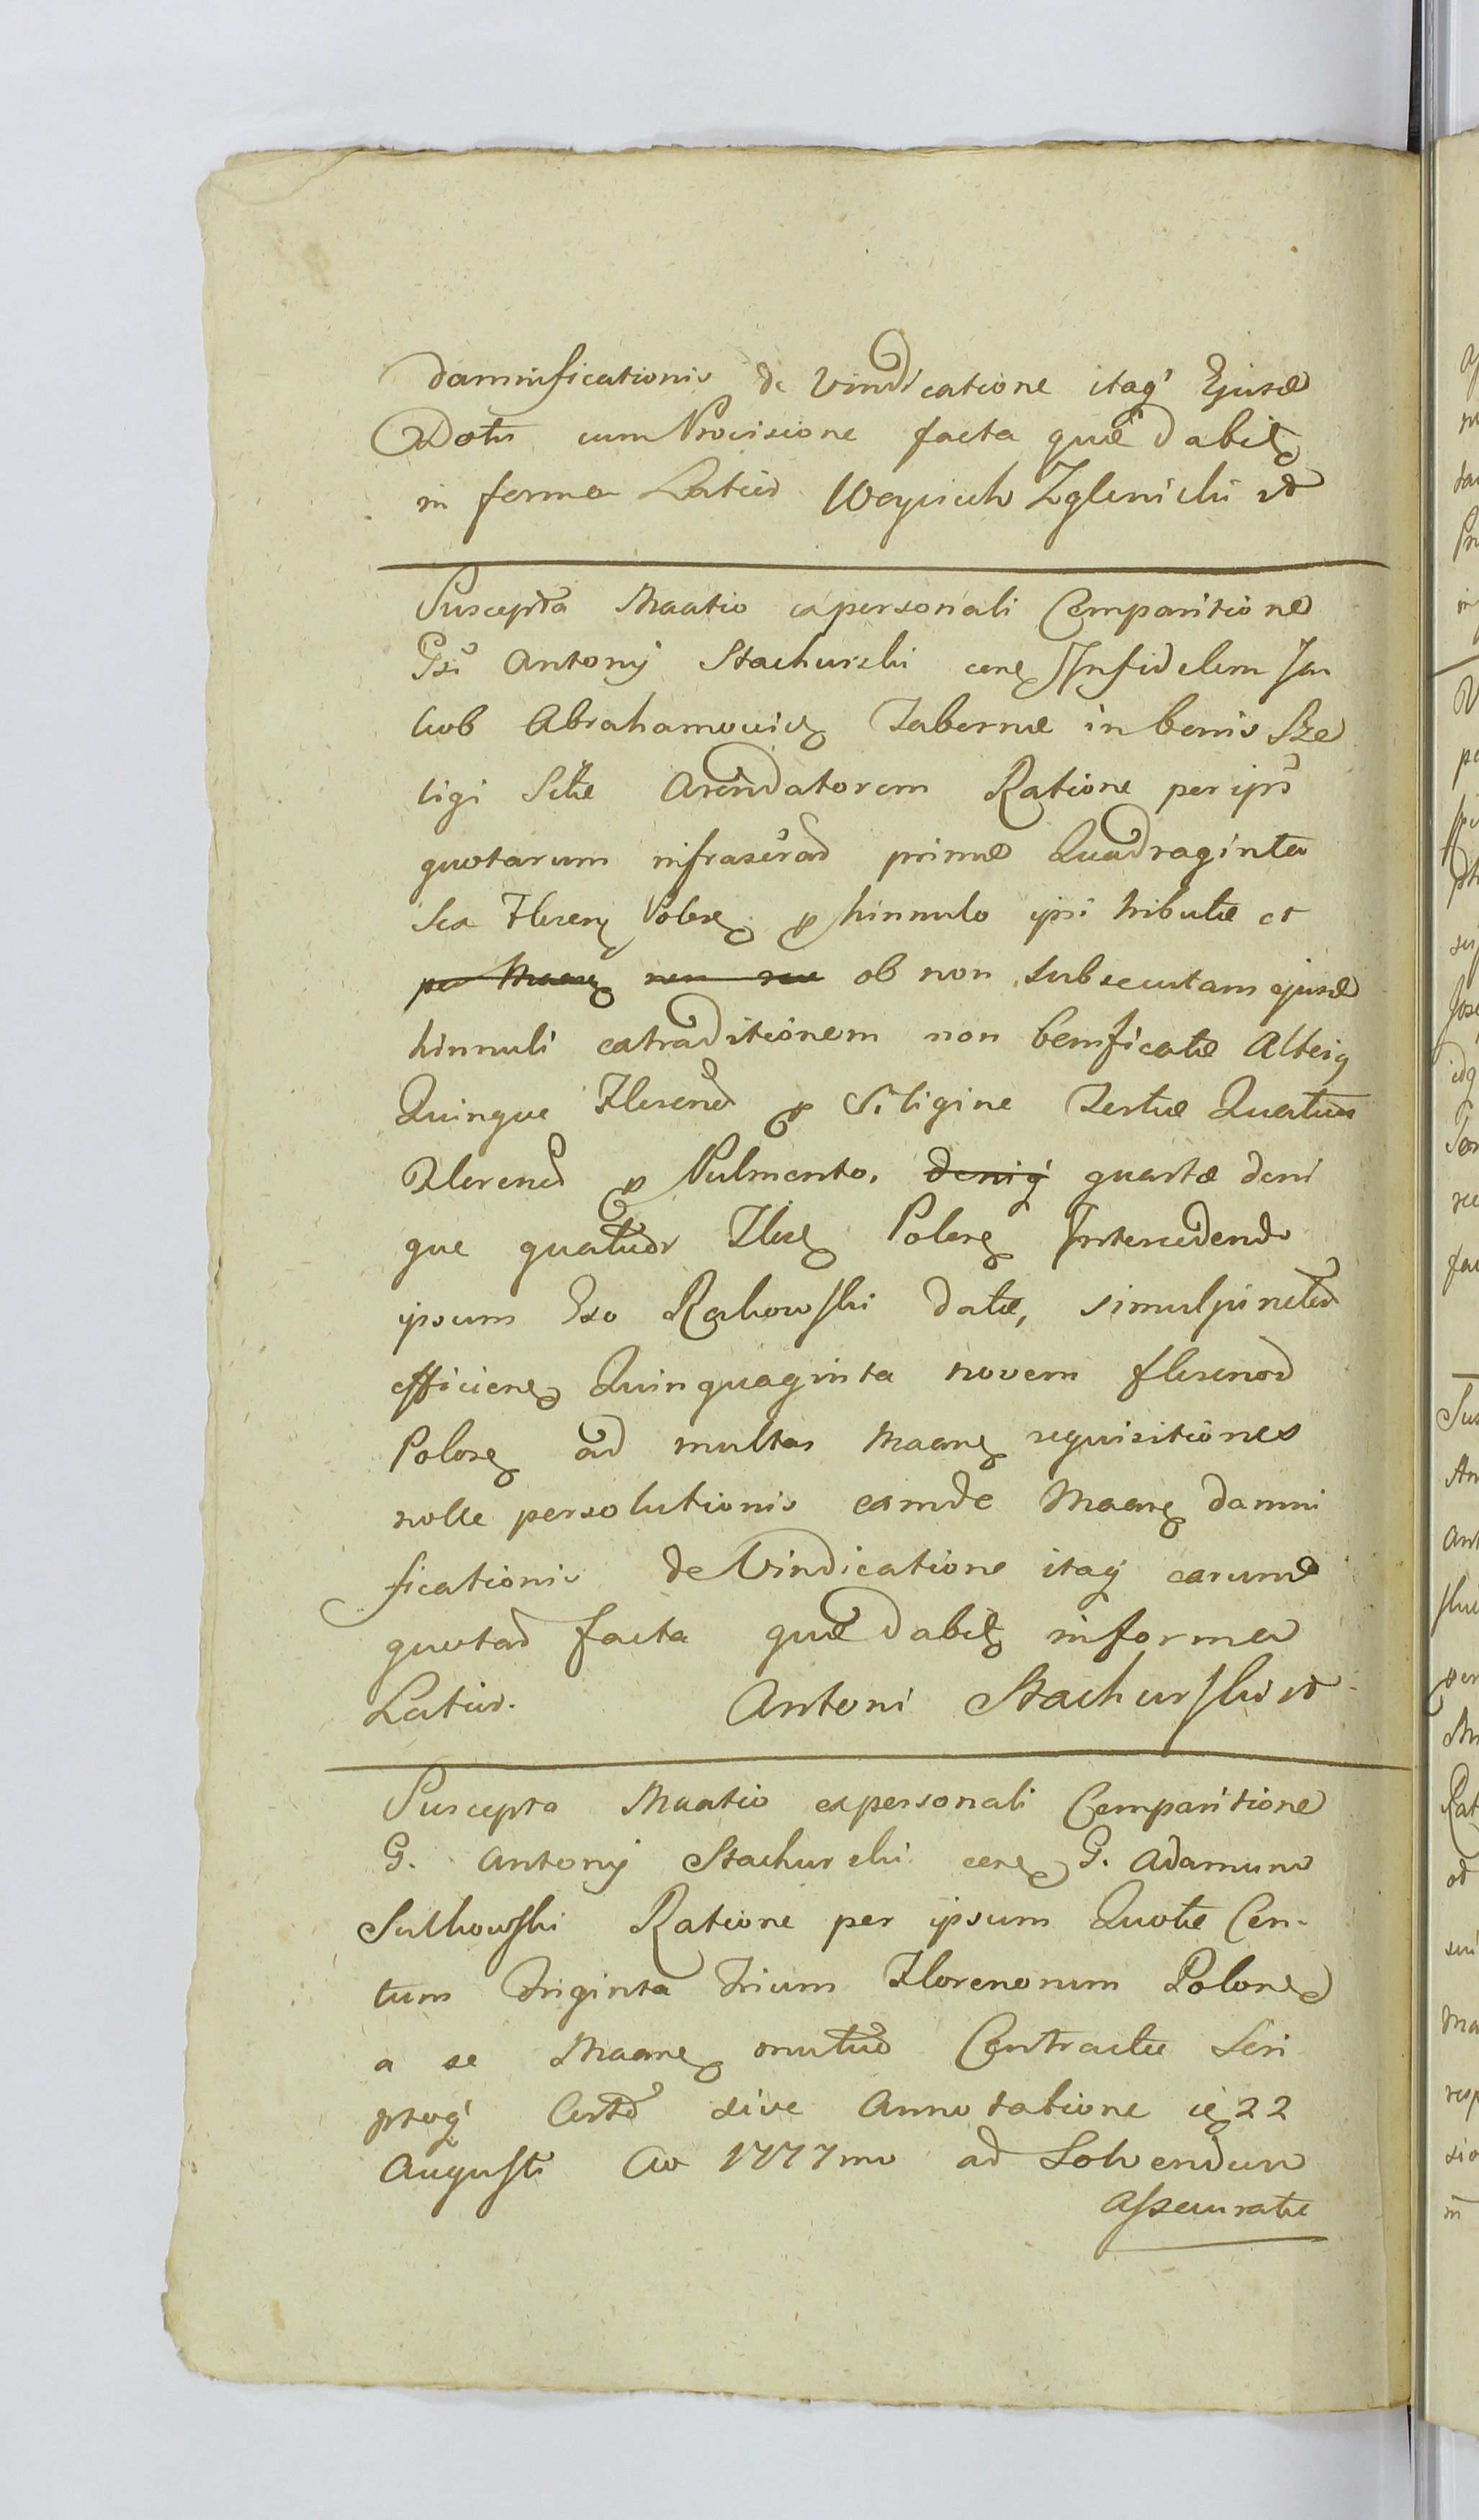 damnificationis de Vindicatione itaq' Ejusd
Dotis cum Provisione facta quæ dabit
in forma Latius Woyciech Zglinicki
Suscepta Maatio ex personali Comparitione
Gsi Antonij Stachurski cone Infidelem Ja
kob Abrahamowicz Tabernæ in bonis Sze
ligi Sitæ Arendatorem Ratione per ips
quotarum infrascrad primæ Quadraginta
Sex Floren Polon p hinnulo ipsi tributæ et
ob non subsecutam ejusd
hinnuli extraditionem non bonificatæ Alteig
Quinque Florenod p Siligine Tertiæ Quatuor
Florenod p Pulmento, deniq' quartæ deni
que quatuor Flor Polon Intercedendo
ipsum Exo Rakowski datæ, simul junctad
efficien Quinquaginta novem florenod
Polon ad multas Maane requisitiones
nolle persolutionis eamde Maane damni
ficationis de Vindicatione itaq earumd
quotad facta quæ dabit in forma
Latius. Antoni Stachurski
Suscepta Maatio ex personali Comparitione
G. Antonij Stachurski cone G. Adamum
Sulkowski Ratione per ipsum Quotæ Cen-
tum Triginta Trium Florenorum Polon
a se Maane mutuo Contractæ Scri
ptoq' Certo sive Annotatione 22
Augusti Ao 1777mo ad Solvendum
Assecuratæ